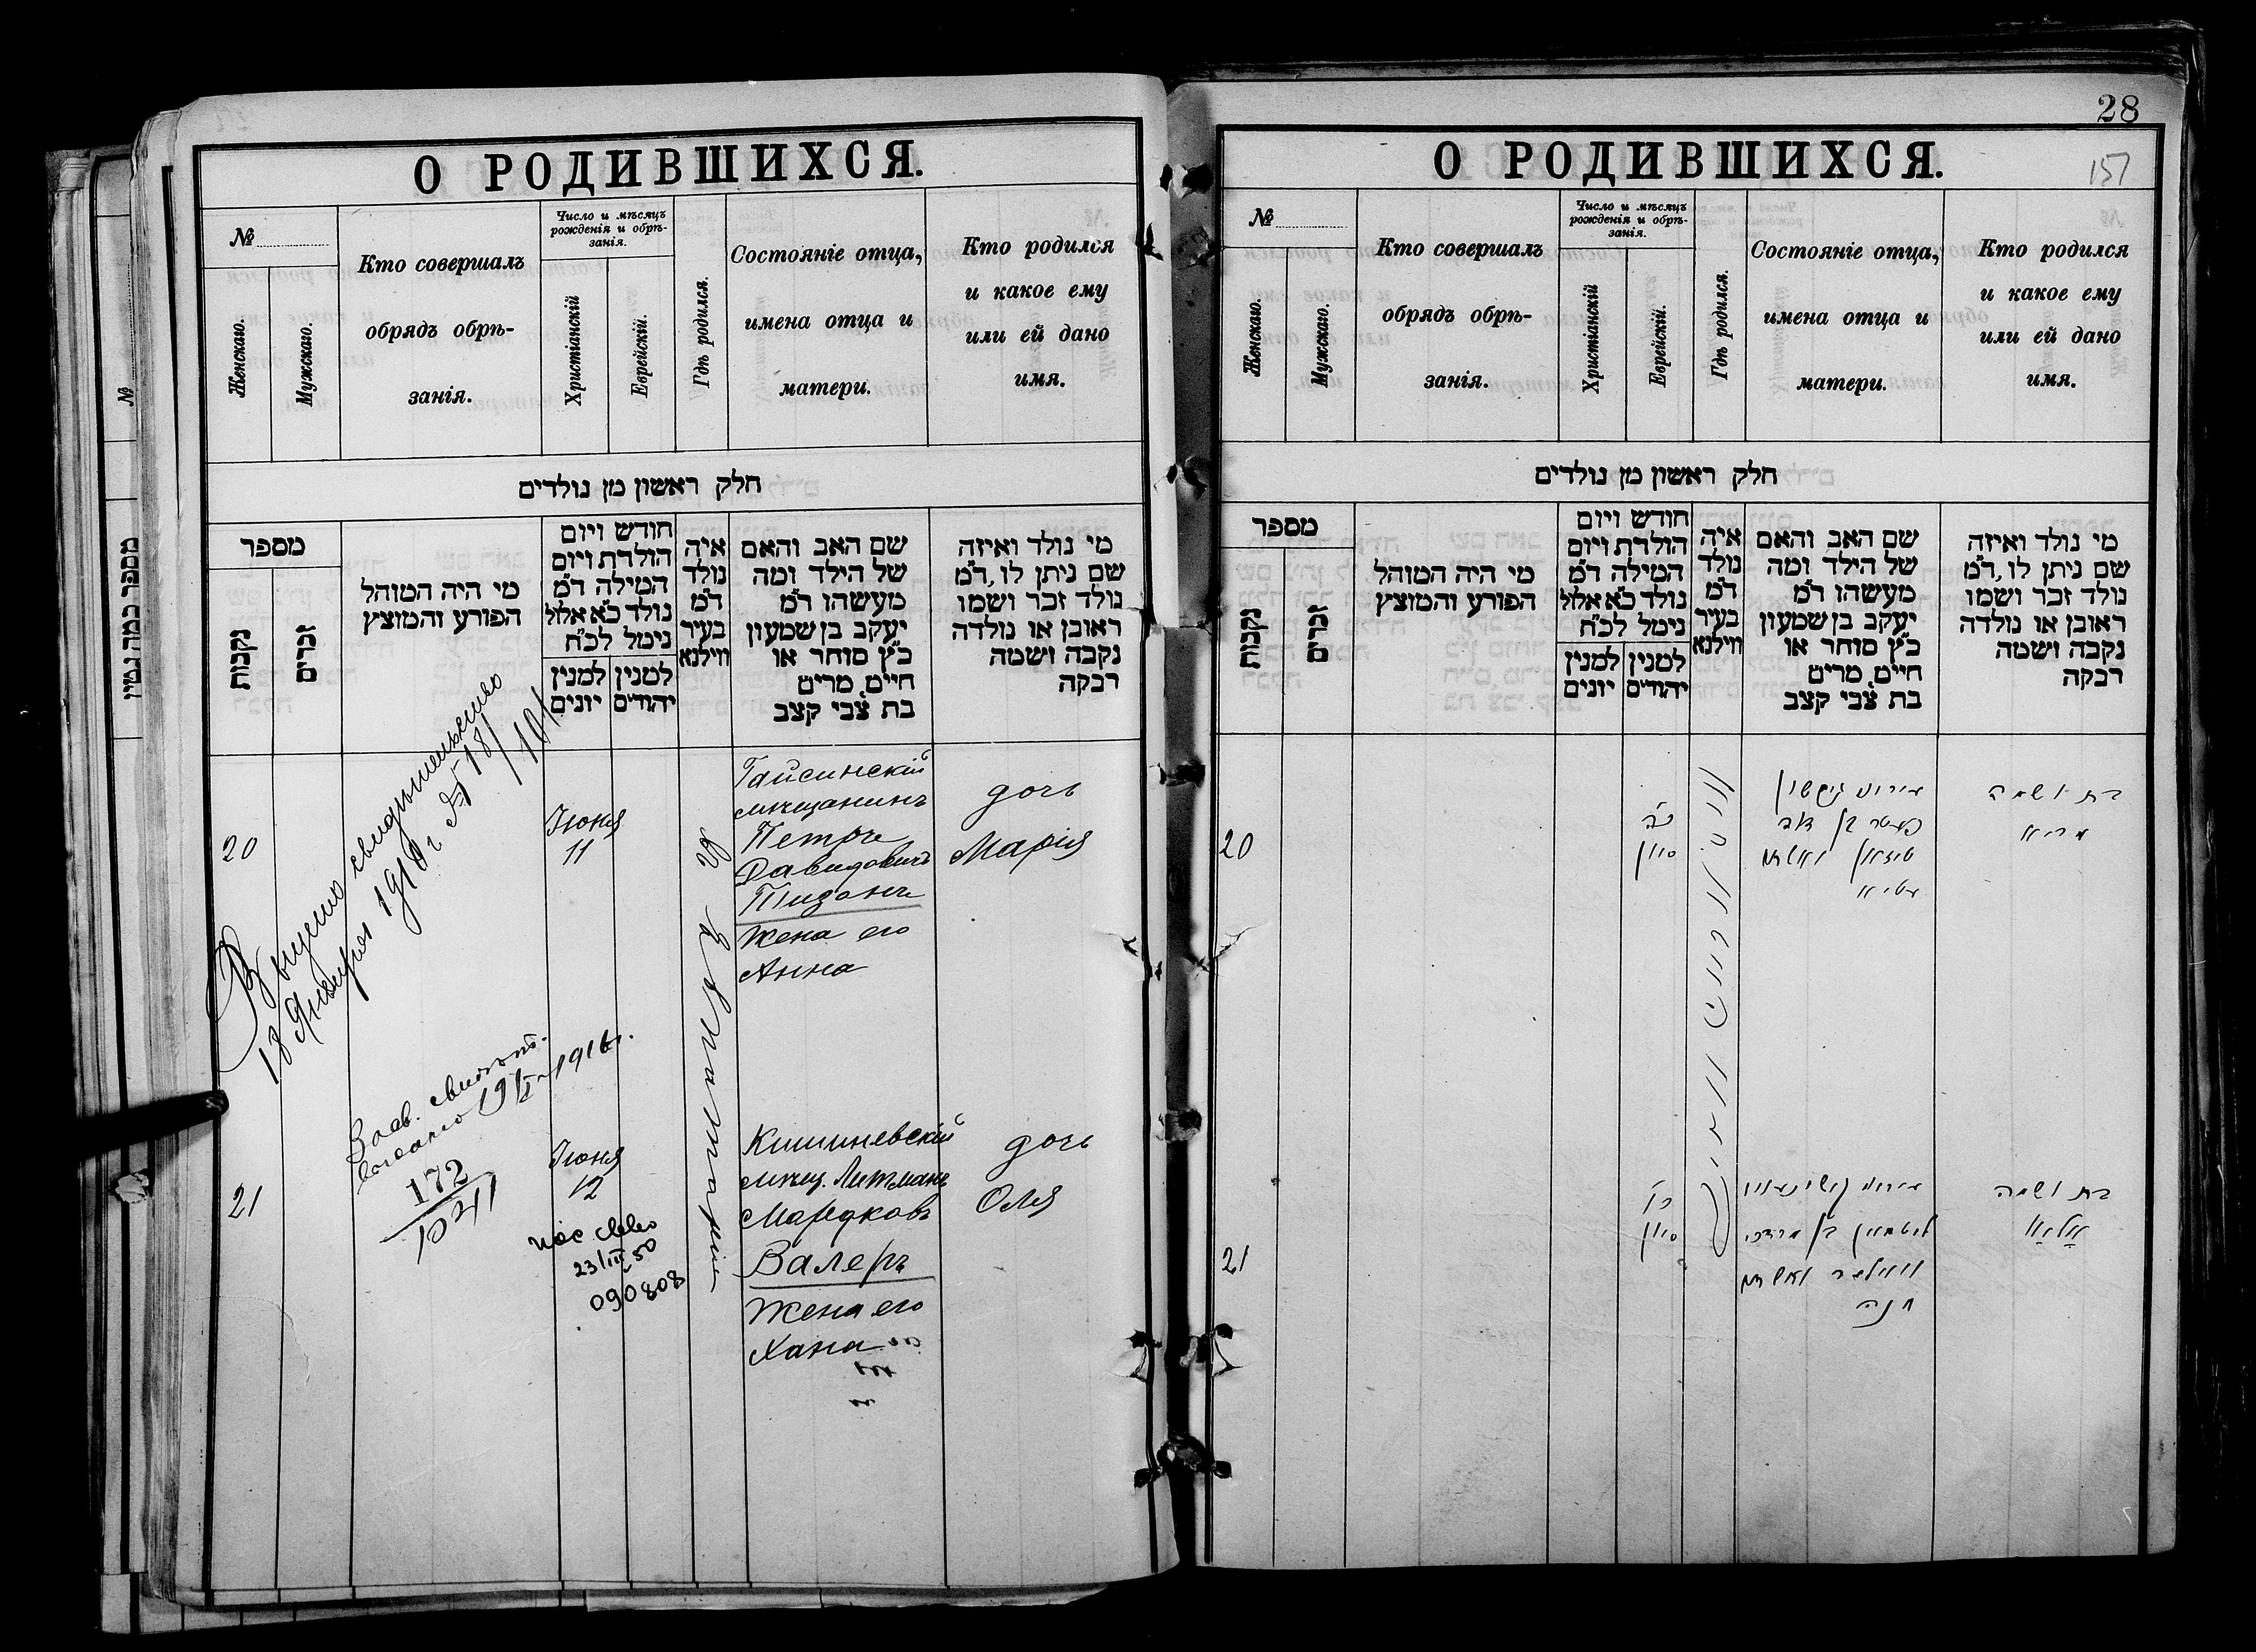 О РОДИВШИХСЯ.
№
Женскаго.
Мужскаго.
Кто совершалъ
обрядъ обрѣ-
занія.
Число и мѣсяцъ
рожденія и обрѣ-
занія.
Христіанскій
Еврейскій.
Гдѣ родился.
Состояніе отца,
имена отца и
матери.
Кто родился
и какое ему
или ей дано
имя.
חלק ראשון מן נולדים
מספר
נקבות
זכרים
מי היה המוהל
הפורע והמוצץ
חודש ויום
הולדת ויום
המילה ד״מ
נולד כ״א אלול
נימל לכ״ח
למנין
יונים
למנין
יהודים
איה
נולד
ד״מ
בעיר
ווילנא
שם האב והאם
של הילד ומה
מעשהו ד״מ
יעקב בן שמעון
כ״ץ סוחר או
חיים מרים
בת צבי קצב
מי נולד ואיזה
שם ניתן לו, ד״מ
נולד זכר ושמו
ראובן או נולדה
נקבה ושמה
רבקה
20
Выдано свидѣтельство
18 Января 1910 г № 18/101
Іюня
11
Гайсинскій
мѣщанинъ
Петръ
Давидовичъ
Тизонъ
жена его
Анна
дочь
Марія
21
172
Іюня
12
23/III 50
090808
Кишиневскій
мѣщ. Литманъ
Мардковъ
Валеръ
жена его
Хана
дочь
Оля
28
157
О РОДИВШИХСЯ.
№
Женскаго.
Мужскаго.
Кто совершалъ
обрядъ обрѣ-
занія.
Число и мѣсяцъ
рожденія и обрѣ-
занія.
Христіанскій
Еврейскій.
Гдѣ родился.
Состояніе отца,
имена отца и
матери.
Кто родился
и какое ему
или ей дано
имя.
חלק ראשון מן נולדים
מספר
נקבות
זכרים
מי היה המוהל
הפורע והמוצץ
חודש ויום
הולדת ויום
המילה ד״מ
נולד כ״א אלול
נימל לכ״ח
למנין
יונים
למנין
יהודים
איה
נולד
ד״מ
בעיר
ווילנא
שם האב והאם
של הילד ומה
מעשהו ד״מ
יעקב בן שמעון
כ״ץ סוחר או
חיים מרים
בת צבי קצב
מי נולד ואיזה
שם ניתן לו, ד״מ
נולד זכר ושמו
ראובן או נולדה
נקבה ושמה
רבקה
20
סיון
בת ושמה
מריא
21
סיון
ליטמאן בן מרדכי
חנה
בת ושמה
אָליאַ